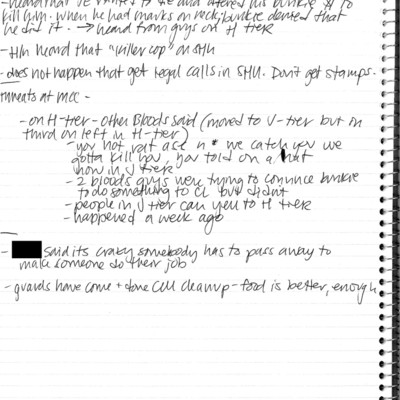 - heard that
kill him. when he had marks on neck, bunkie denied that
he did it. → heard from guys on H tier
- Hm heard that "killer cop" on SHU
- does not happen that get legal calls in SHU. Don't get stamps.
threats at MCC -
- on H-tier - other Bloods said (moved to V-tier but on
third on left in H-tier)
- you hot rat ass n* we catch you we
gotta kill you, you told on a
now in J tier
- 2 bloods guys were trying to convince bunkie
to do something to CL but didnt
- people in J tier can yell to H tier
- happened a week ago
- said its crazy somebody has to pass away to
make someone do their job
- guards have come + done cell cleanup - food is better, enough